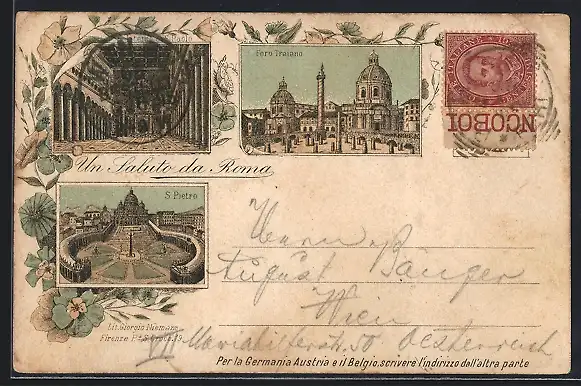 Paolo
Foro Traiano
Un Saluto da Roma
S. Pietro
Herrn
August Bänger
Wien
VII Mariahilferstr. 50 Oesterreich
Lit. Giorgio
Firenze Pza S. Croce 19.
Per la Germania Austria e il Belgio, scrivere l'indirizzo dall'altra parte